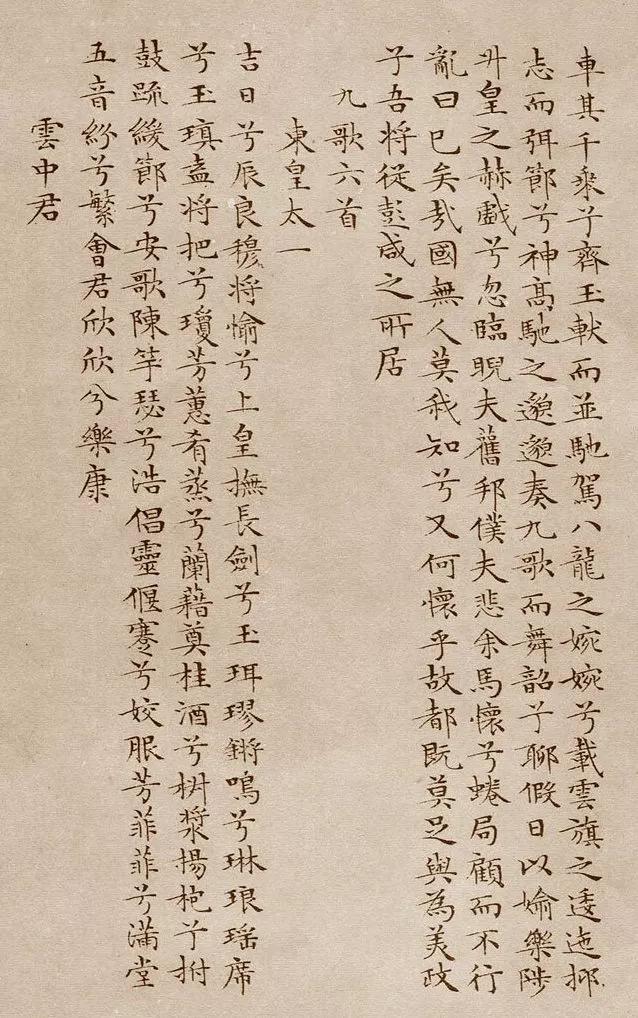 車其千椉兮齊玉軑而並馳駕八龍之婉婉兮載雲旗之逶迤抑
志而弭節兮神高馳之邈邈奏九歌而舞韶兮聊假日以婾樂陟
升皇之赫戲兮忽臨睨夫舊邦僕夫悲余馬懷兮蜷局顧而不行
亂曰已矣哉國無人莫我知兮又何懷乎故都既莫足與為美政
子吾將從彭咸之所居
九歌六首
東皇太一
吉日兮辰良穆將愉兮上皇撫長劍兮玉珥璆鏘鳴兮琳琅瑤席
兮玉瑱盍將把兮瓊芳蕙肴蒸兮蘭藉奠桂酒兮椒漿揚枹兮拊
鼓疏緩節兮安歌陳竽瑟兮浩倡靈偃蹇兮姣服芳菲菲兮滿堂
五音紛兮繁會君欣欣兮樂康
雲中君